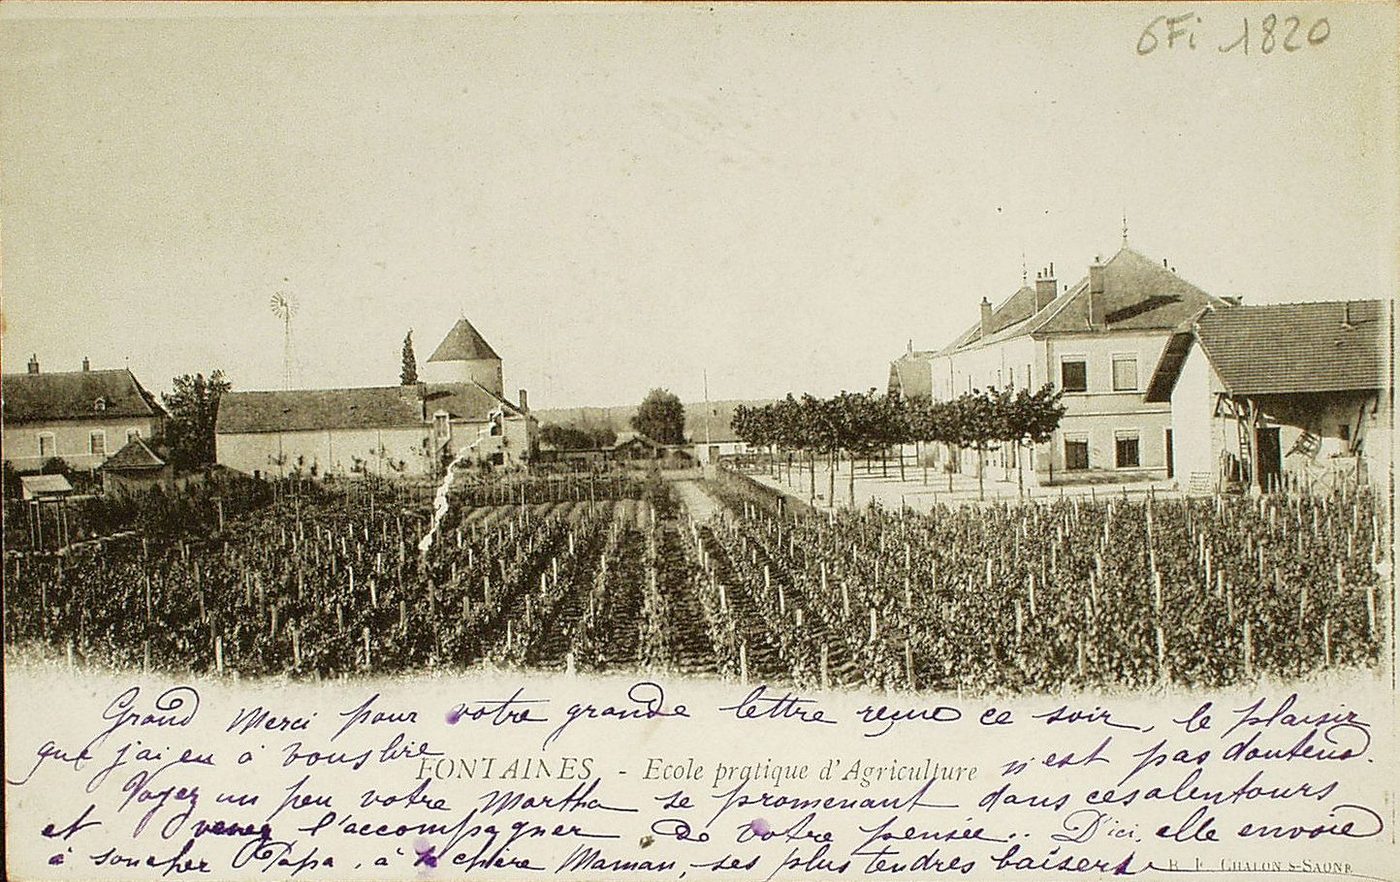 6Fi 1820
Grand Merci pour votre grande lettre reçue ce soir, le plaisir
que j'ai eu à vous lire n'est pas douteux.
FONTAINES - Ecole pratique d'Agriculture
Voyez un peu votre Martha se promenant dans ces alentours
et venez l'accompagner de votre pensée.. D'ici, elle envoie
à son cher Papa, à sa chère Maman, ses plus tendres baisers
B. F. CHALON S-SAONE